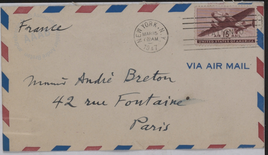 France
NEW YORK, N.Y.
UNITED STATES OF AMERICA
VIA AIR MAIL
André Breton
42 rue Fontaine
Paris